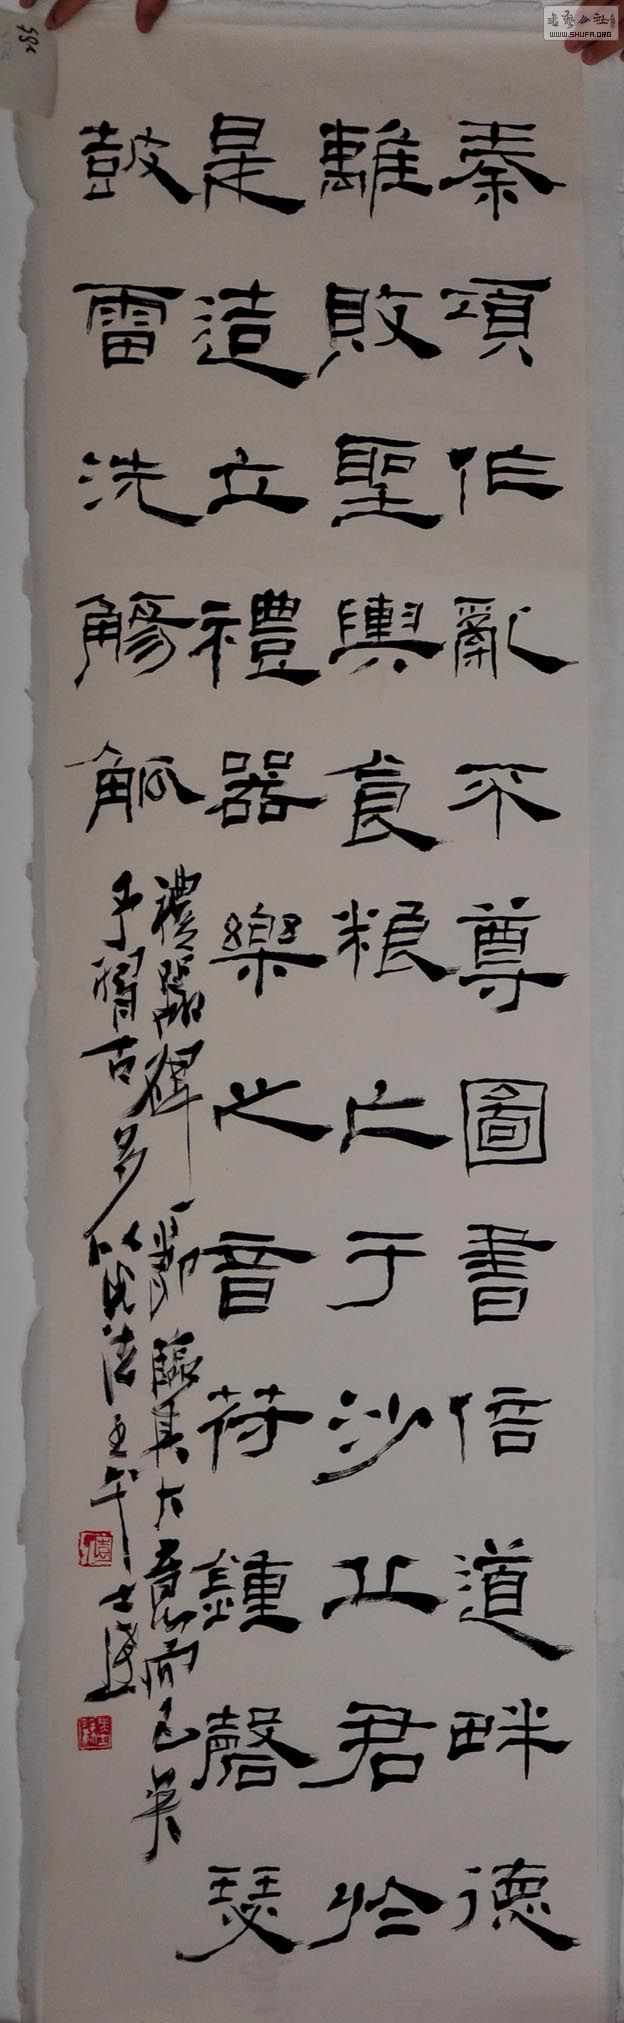 秦項作亂不尊圖書倍道畔德
離敗聖輿食粮亡于沙丘君於
是造立禮器樂之音符鍾磬瑟
鼓雷洗觴觚
禮器碑一節臨其大意而已吴
予習古多以此法 午 士
書藝公社
WWW.SHUFA.ORG